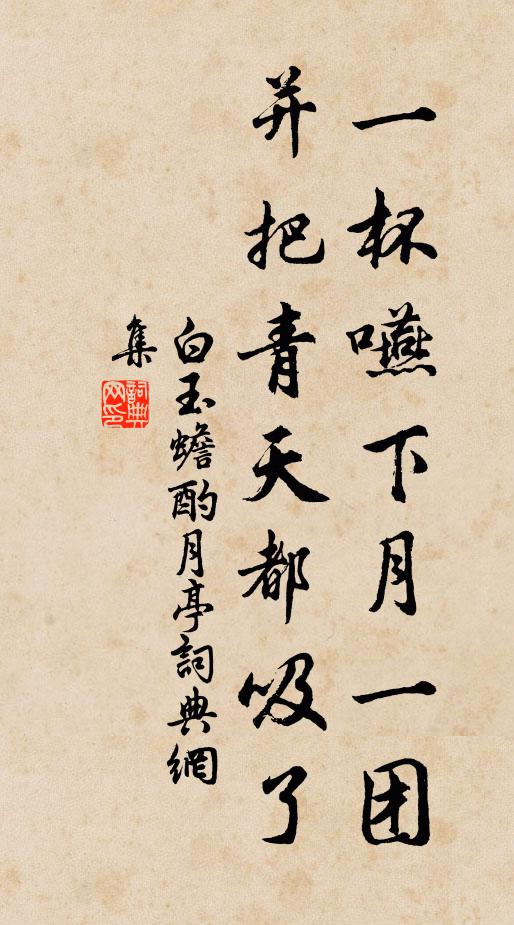 一杯嚥下月一团
并把青天都吸了
白玉蟾酌月亭詞典網
集
詞典
网印